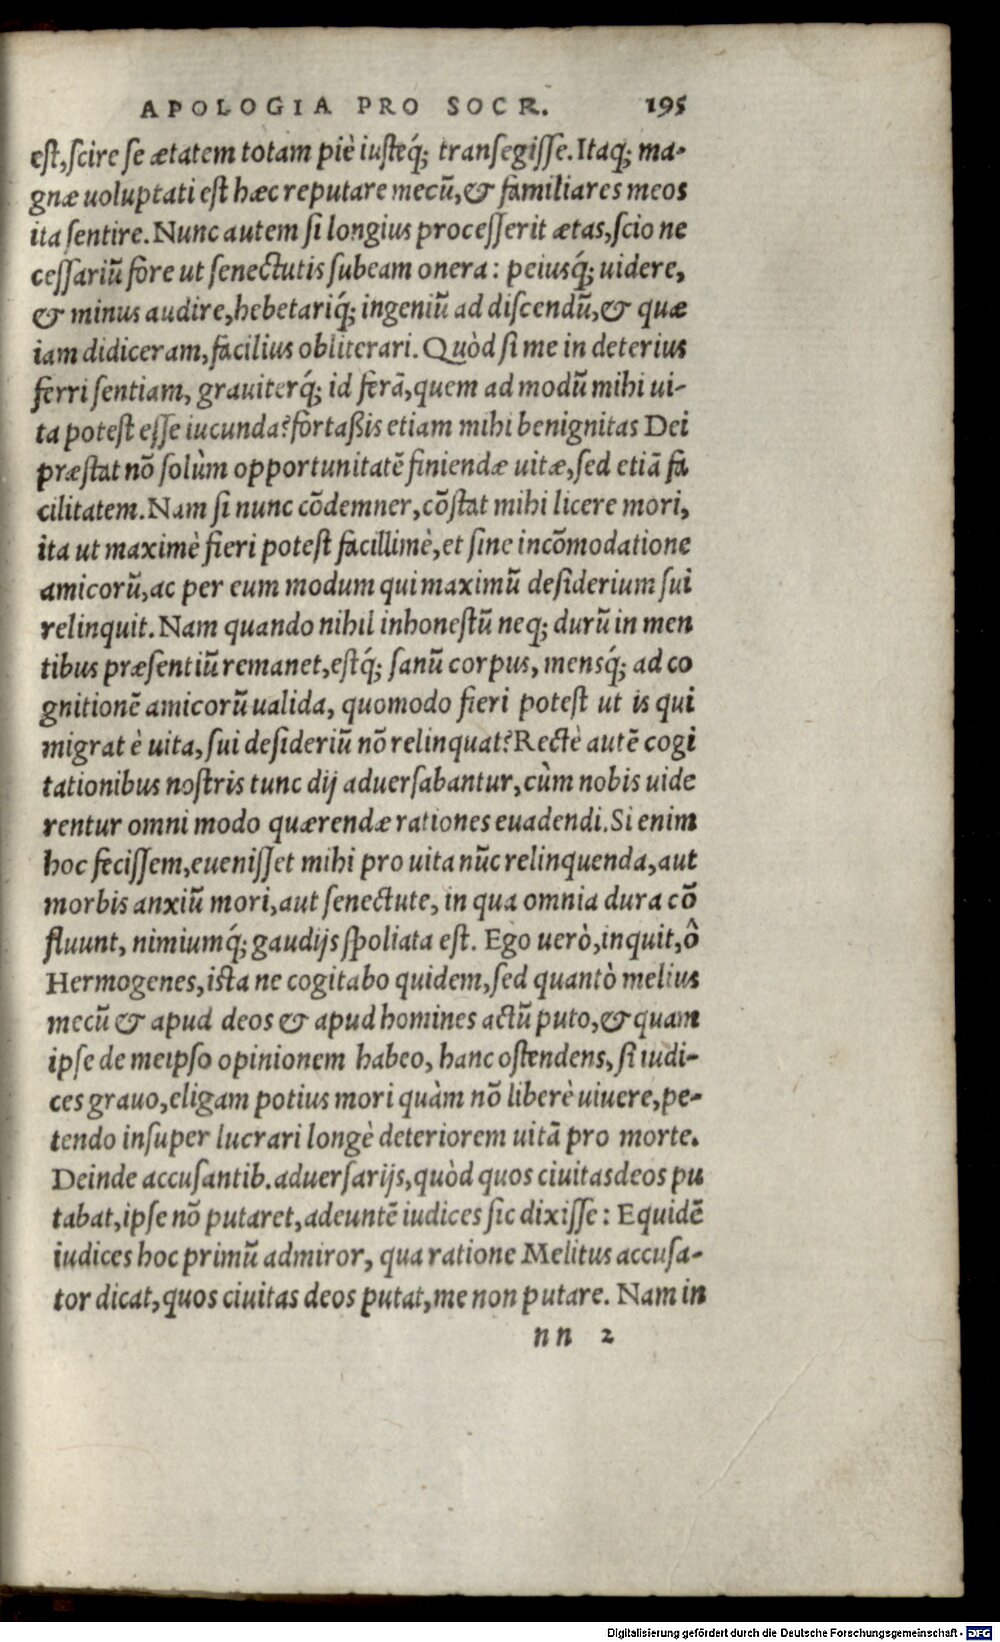 APOLOGIA PRO SOCR. 195
est, scire se ætatem totam piè iusteq́; transegisse. Itaq; ma-
gnæ uoluptati est hæc reputare mecũ, & familiares meos
ita sentire. Nunc autem si longius processerit ætas, scio ne
cessariũ fore ut senectutis subeam onera: peiusq́; uidere,
& minus audire, hebetariq́; ingeniũ ad discendũ, & quæ
iam didiceram, facilius obliterari. Quòd si me in deterius
ferri sentiam, grauiterq́; id ferã, quem ad modũ mihi ui-
ta potest esse iucunda? fortaßis etiam mihi benignitas Dei
præstat nõ solùm opportunitatẽ finiendæ uitæ, sed etiã fa
cilitatem. Nam si nunc cõdemner, cõstat mihi licere mori,
ita ut maximè fieri potest facillimè, et sine incõmodatione
amicorũ, ac per eum modum qui maximũ desiderium sui
relinquit. Nam quando nihil inhonestũ neq; durũ in men
tibus præsentiũ remanet, estq́; sanũ corpus, mensq́; ad co
gnitionẽ amicorũ ualida, quomodo fieri potest ut is qui
migrat è uita, sui desideriũ nõ relinquat? Rectè autẽ cogi
tationibus nostris tunc dij aduersabantur, cùm nobis uide
rentur omni modo quærendæ rationes euadendi. Si enim
hoc fecissem, euenisset mihi pro uita nũc relinquenda, aut
morbis anxiũ mori, aut senectute, in qua omnia dura cõ
fluunt, nimiumq́; gaudijs spoliata est. Ego uerò, inquit, ô
Hermogenes, ista ne cogitabo quidem, sed quantò melius
mecũ & apud deos & apud homines actũ puto, & quam
ipse de meipso opinionem habeo, hanc ostendens, si iudi-
ces grauo, eligam potius mori quàm nõ liberè uiuere, pe-
tendo insuper lucrari longè deteriorem uitã pro morte.
Deinde accusantib. aduersarijs, quòd quos ciuitas deos pu
tabat, ipse nõ putaret, adeuntẽ iudices sic dixisse: Equidẽ
iudices hoc primũ admiror, qua ratione Melitus accusa-
tor dicat, quos ciuitas deos putat, me non putare. Nam in
nn 2
Digitalisierung gefördert durch die Deutsche Forschungsgemeinschaft - DFG